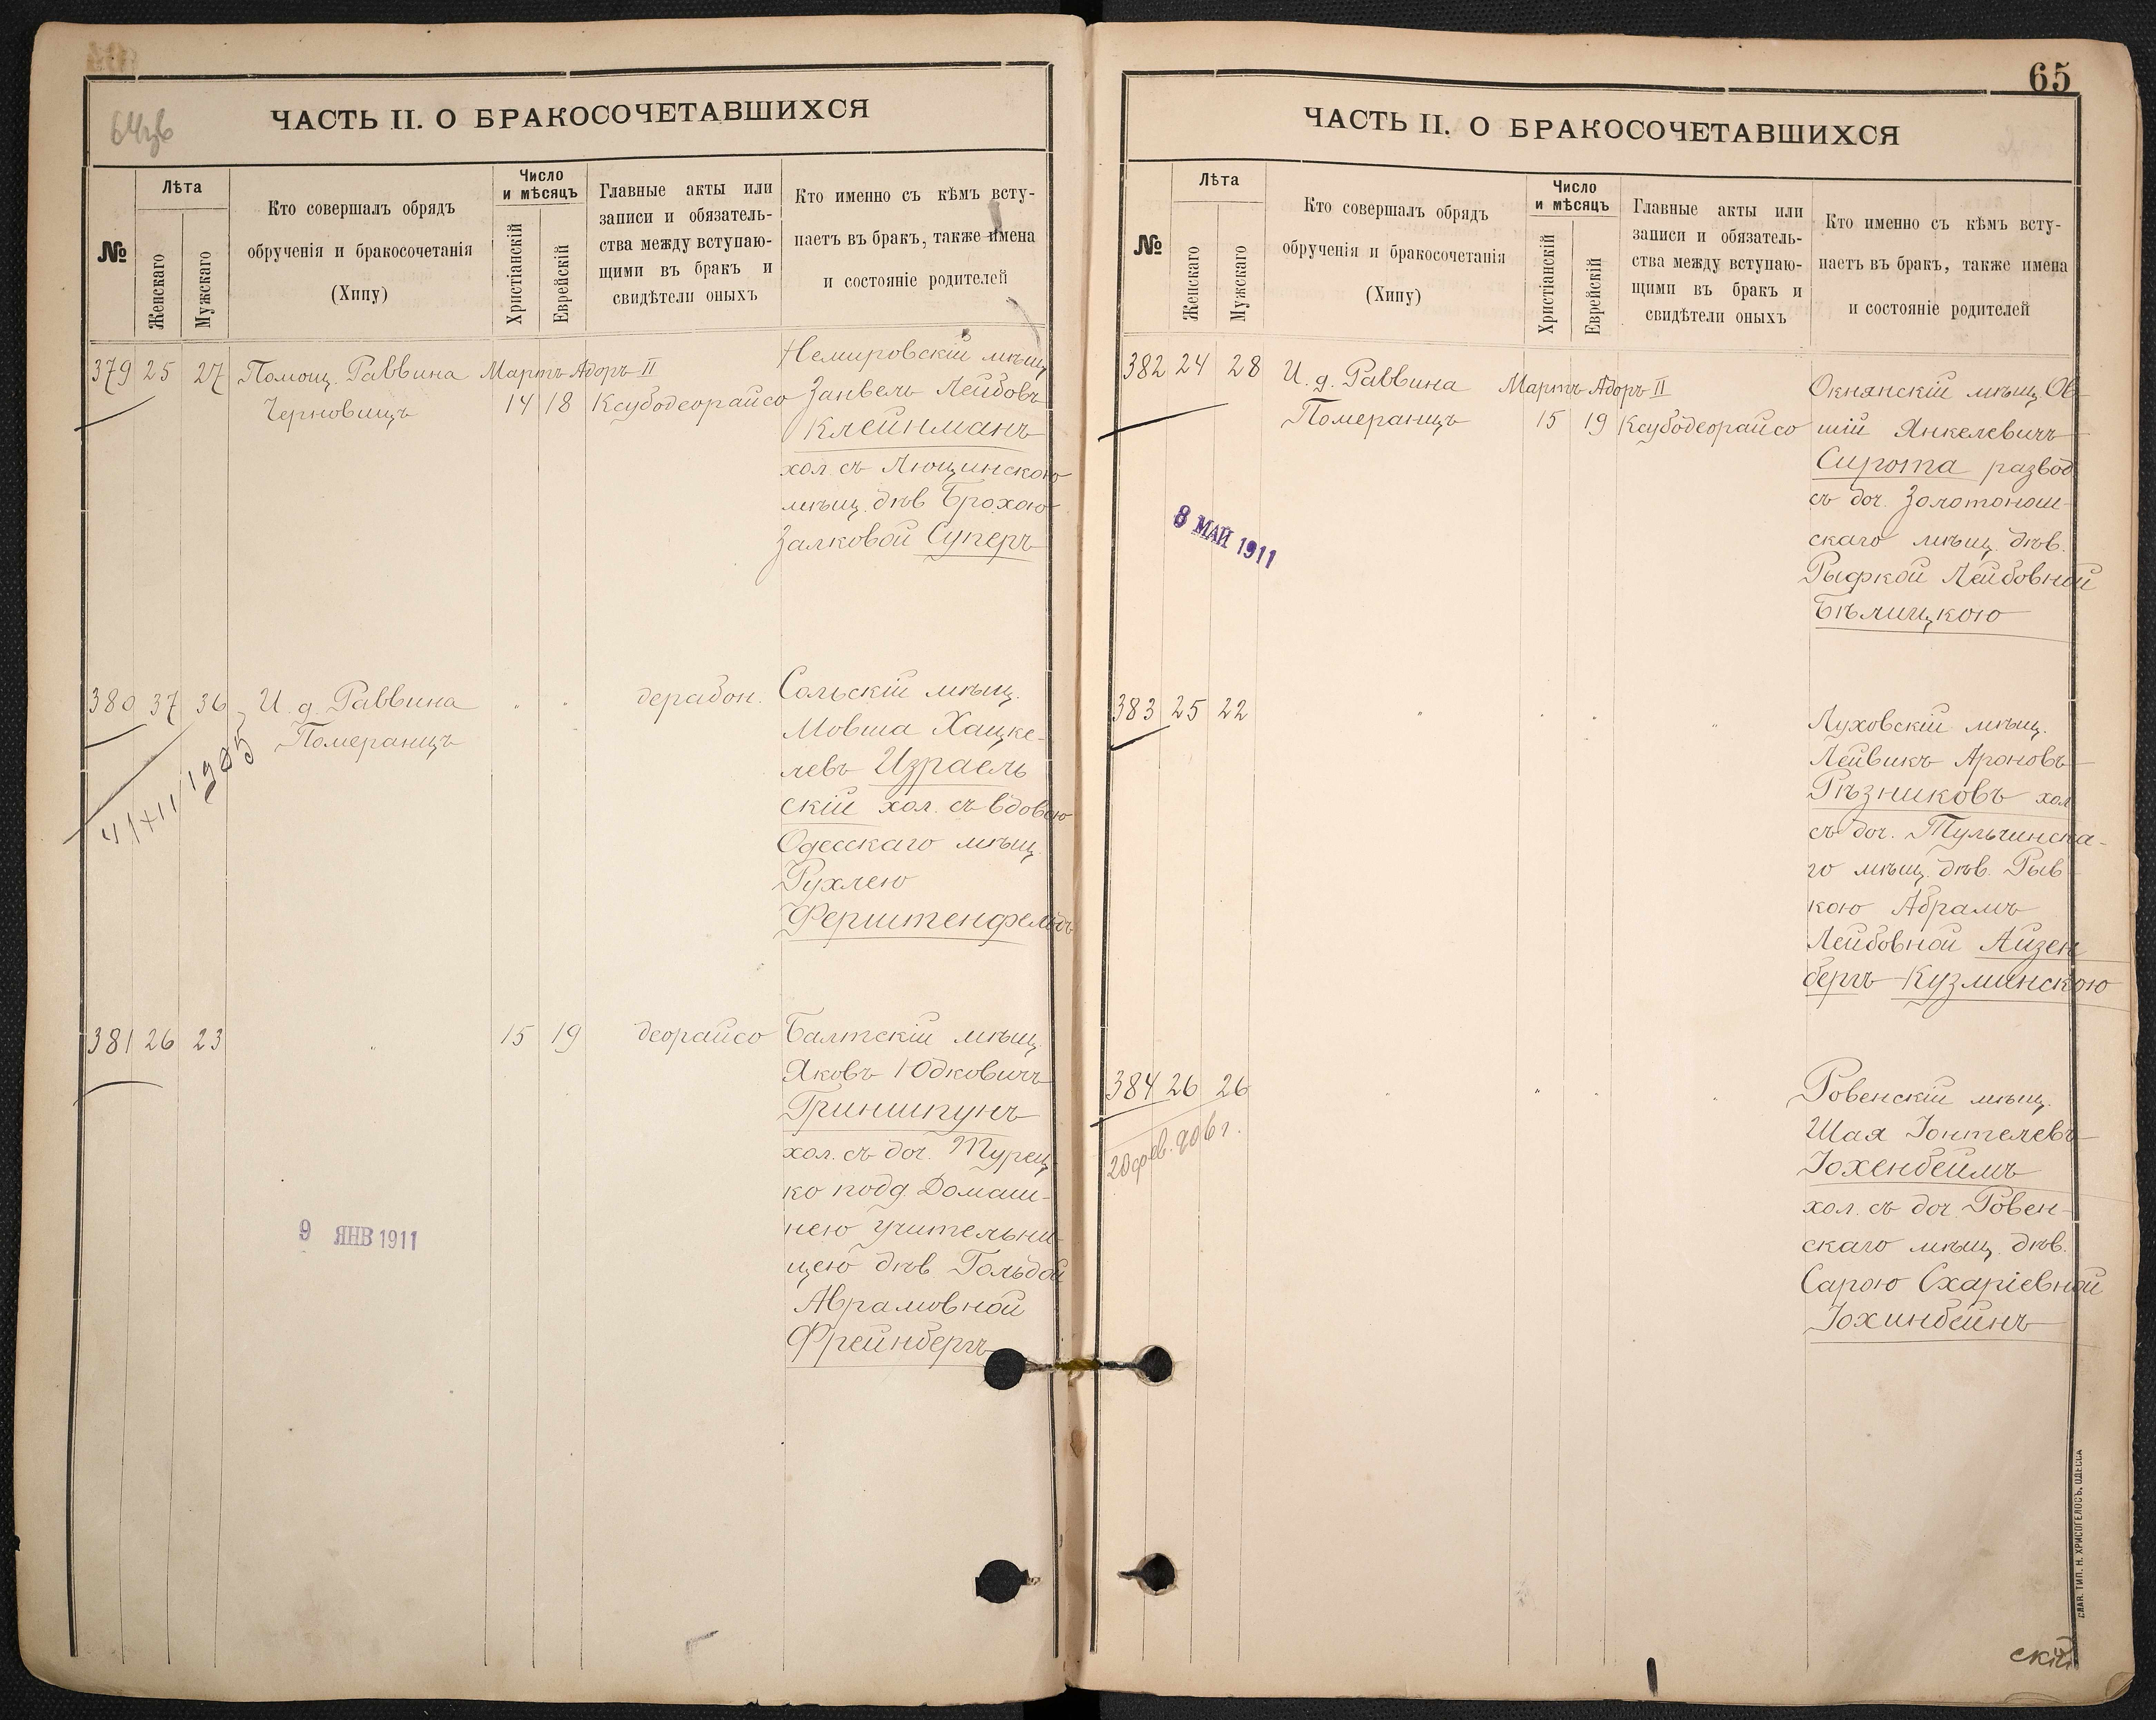 ЧАСТЬ II. О БРАКОСОЧЕТАВШИХСЯ
№
Лѣта
Женскаго
Мужскаго
Кто совершалъ обрядъ
обрученія и бракосочетанія
(Хипу)
Число
и мѣсяцъ
Христіанскій
Еврейскій
Главные акты или
записи и обязатель-
ства между вступаю-
щими въ бракъ и
свидѣтели оныхъ
Кто именно съ кѣмъ всту-
паетъ въ бракъ, также имена
и состояніе родителей
379 25 27 Помощ. Раввина Мартъ Адоръ II
Черновицъ 14 18 Ксубодеорайсо
Немировскій мѣщ.
Занвель Лейбовъ
Клейнманъ
хол. съ Люцинскою
мѣщ. дѣв Брохою
Залковой Суперъ
380 37 36 И. д. Раввина " " дерабон.
Померанцъ
4/XII 1905
Сольскій мѣщ.
Мовша Хацке-
левъ Израель
скій хол. съ вдовою
Одесскаго мѣщ.
Рухлею
Ферштенфельдъ
381 26 23 " 15 19 деорайсо
Балтскій мѣщ.
Яковъ Юдковичъ
Гриншпунъ
хол. съ доч. Турец
ко подд. Домаш-
нею учительни-
цею дѣв Гольдой
Аврамовной
Фрейнбергъ
9 ЯНВ 1911
65
ЧАСТЬ II. О БРАКОСОЧЕТАВШИХСЯ
№
Лѣта
Женскаго
Мужскаго
Кто совершалъ обрядъ
обрученія и бракосочетанія
(Хипу)
Число
и мѣсяцъ
Христіанскій
Еврейскій
Главные акты или
записи и обязатель-
ства между вступаю-
щими въ бракъ и
свидѣтели оныхъ
Кто именно съ кѣмъ всту-
паетъ въ бракъ, также имена
и состояніе родителей
382 24 28 И. д. Раввина Мартъ Адоръ II
Померанцъ 15 19 Ксубодеорайсо
8 МАЙ 1911
Окнянскій мѣщ. Ов
шій Янкелевичъ
Сирота развод
съ доч. Золотонош-
скаго мѣщ. дѣв.
Рыфкой Лейбовной
Бѣлицкою
383 25 22 " " " "
Луховскій мѣщ.
Лейвикъ Ароновъ
Рѣзниковъ хол
съ доч. Тульчинска-
го мѣщ. дѣв. Рыв
кою Абрамъ
Лейбовной Айзен
бергъ-Кузминскою
384 26 26 " " " "
20 фев. 906 г.
Ровенскій мѣщ.
Шая Іонтелевъ
Іохенбеймъ
хол. съ доч. Ровен-
скаго мѣщ. дѣв.
Сарою Схаріевной
Іохинбейнъ
СЛАВ. ТИП. Н. ХРИСОГЕЛОСЪ, ОДЕССА
скій